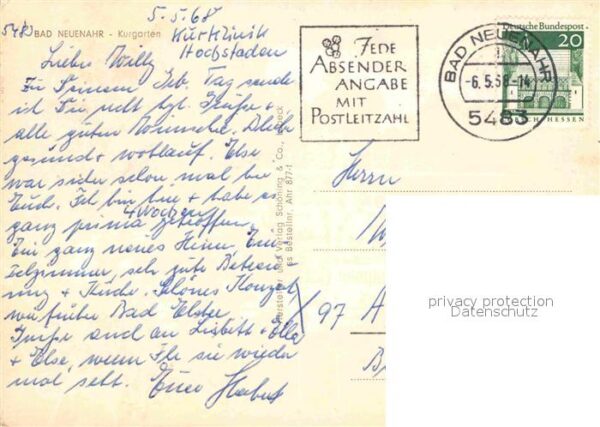 5483 BAD NEUENAHR - Kurgarten
5.5.68
Kurklinik
Hochstaden
Lieber Willy
Zu Deinem Geb. Tag sende
ich Dir recht hzl. Grüße +
alle guten Wünsche. Bleib
gesund + wohlauf. Else
war sicher schon mal bei
Euch. Ich bin hier + habe es
4 Wochen
ganz prima getroffen.
Ein ganz neues Heim, Ein-
zelzimmer, sehr gute Betreu-
ung + Küche. Schönes Konzert
wie früher Bad Elster
Grüße auch an Lisbeth + Ella
+ Else, wenn Ihr sie wieder
mal seht. Euer Herbert
Hersteller und Verlag Schöning & Co., Lübeck
Bestellnr. Ahr 877/1
JEDE
ABSENDER
ANGABE
MIT
POSTLEITZAHL
BAD NEUENAHR
-6.5.68-14
5483
Deutsche Bundespost
20
HESSEN
Herrn
97 A
privacy protection
Datenschutz